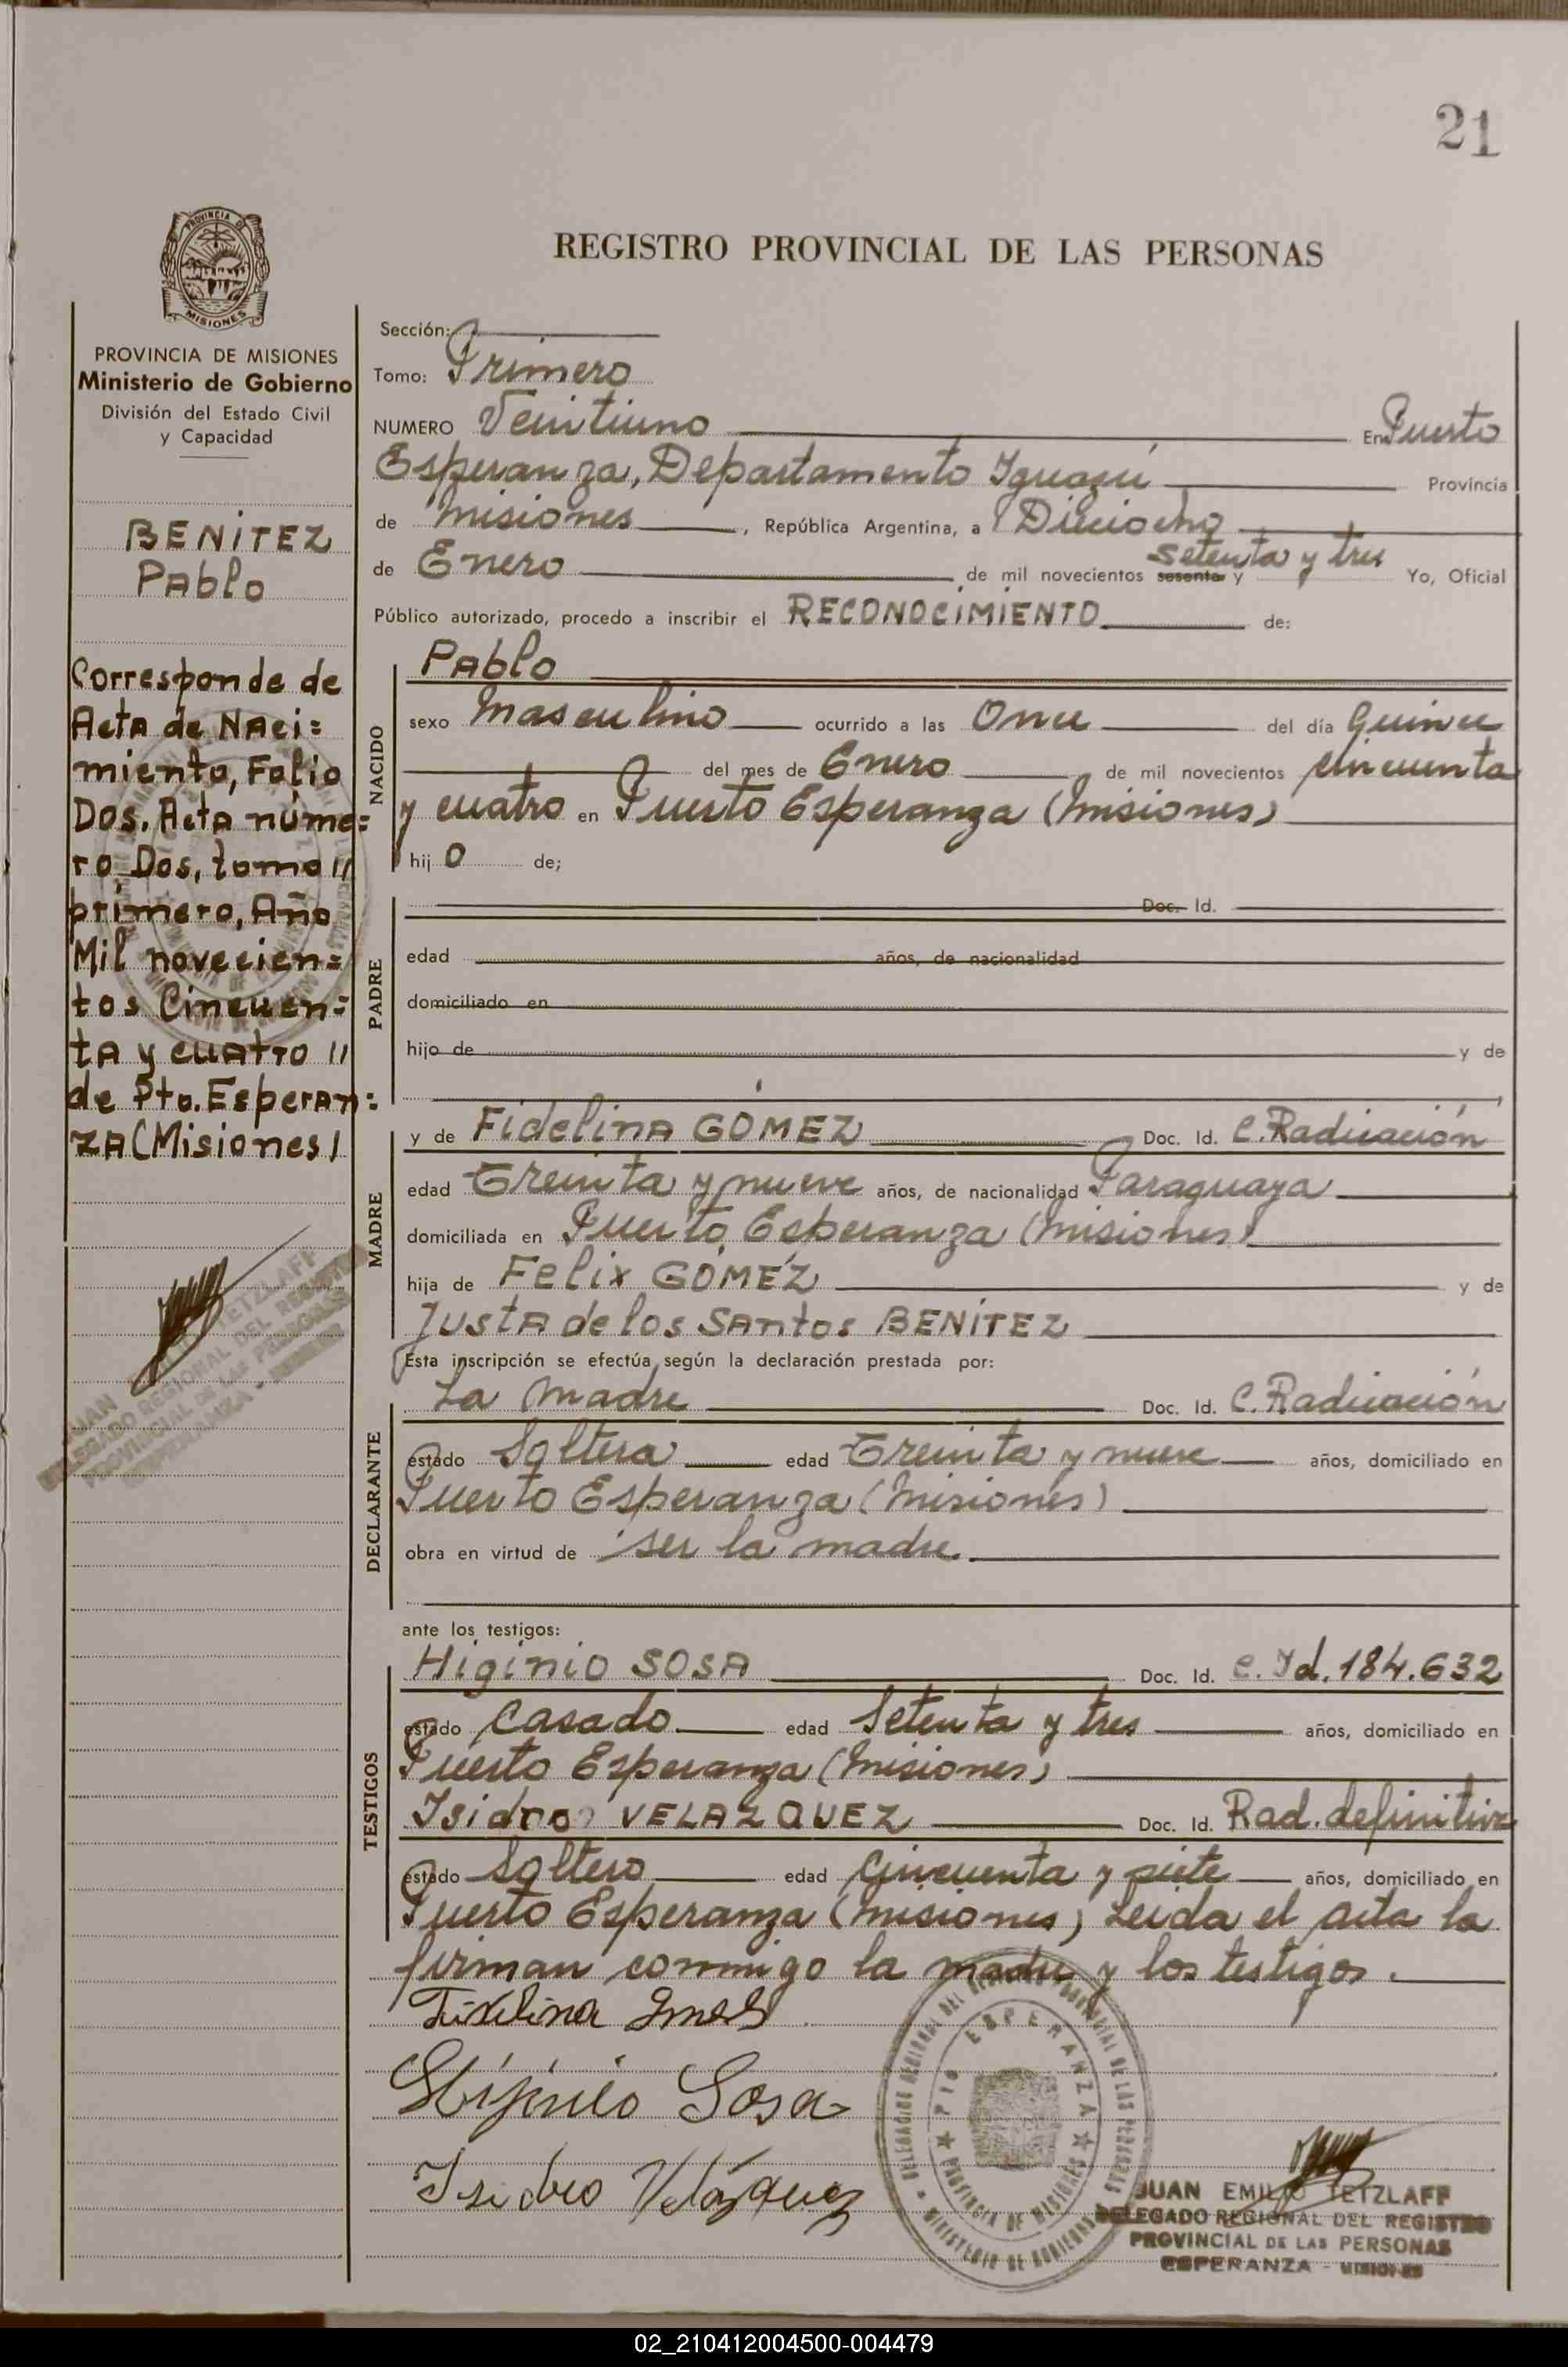 21
PROVINCIA DE
MISIONES
REGISTRO PROVINCIAL DE LAS PERSONAS
PROVINCIA DE MISIONES
Ministerio de Gobierno
División del Estado Civil
y Capacidad
BENITEZ
Pablo
Corresponde de
Acta de Naci=
miento, Folio
Dos. Acta núme=
ro Dos, tomo //
primero, Año
Mil novecien=
tos Cincuen=
ta y cuatro //
de Pto. Esperan=
za (Misiones)
JUAN TETZLAFF
DELEGADO REGIONAL DEL REGISTRO
PROVINCIAL DE LAS PERSONAS
ESPERANZA -
Sección:
Tomo: Primero
NUMERO Veintiuno En Puerto
Esperanza, Departamento Iguazú Provincia
de Misiones, República Argentina, a Dieciocho
de Enero de mil novecientos sesenta y setenta y tres Yo, Oficial
Público autorizado, procedo a inscribir el RECONOCIMIENTO de:
NACIDO
Pablo
sexo Masculino ocurrido a las Once del día Quince
del mes de Enero de mil novecientos cincuenta
y cuatro en Puerto Esperanza (Misiones)
hij o de;
PADRE
Doc. Id.
edad años, de nacionalidad
domiciliado en
hijo de y de
MADRE
y de Fidelina GOMEZ Doc. Id. C. Radicación
edad Treinta y nueve años, de nacionalidad Paraguaya
domiciliada en Puerto Esperanza (Misiones)
hija de Felix GOMEZ y de
Justa de los Santos BENITEZ
Esta inscripción se efectúa según la declaración prestada por:
DECLARANTE
La madre Doc. Id. C. Radicación
estado Soltera edad Treinta y nueve años, domiciliado en
Puerto Esperanza (Misiones)
obra en virtud de ser la madre.
ante los testigos:
TESTIGOS
Higinio SOSA Doc. Id. C. Id. 184.632
estado Casado edad Setenta y tres años, domiciliado en
Puerto Esperanza (Misiones)
Isidro VELAZQUEZ Doc. Id. Rad. definitiva
estado Soltero edad Cincuenta y siete años, domiciliado en
Puerto Esperanza (Misiones) Leida el acta la
firman conmigo la madre y los testigos.
Fidelina Gomez
Higinio Sosa
Isidro Velázquez
PTO ESPERANZA
PROVINCIA DE MISIONES
MINISTERIO DE GOBIERNO
JUAN EMILIO TETZLAFF
DELEGADO REGIONAL DEL REGISTRO
PROVINCIAL DE LAS PERSONAS
ESPERANZA - MISIONES
02_210412004500-004479